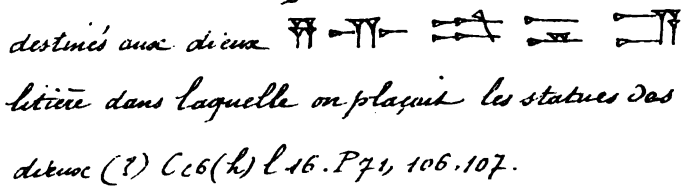 destinés aux dieux
litière dans laquelle on plaçait les statues des
dieux (?) Cc6(h) l 16. P 71, 106. 107.